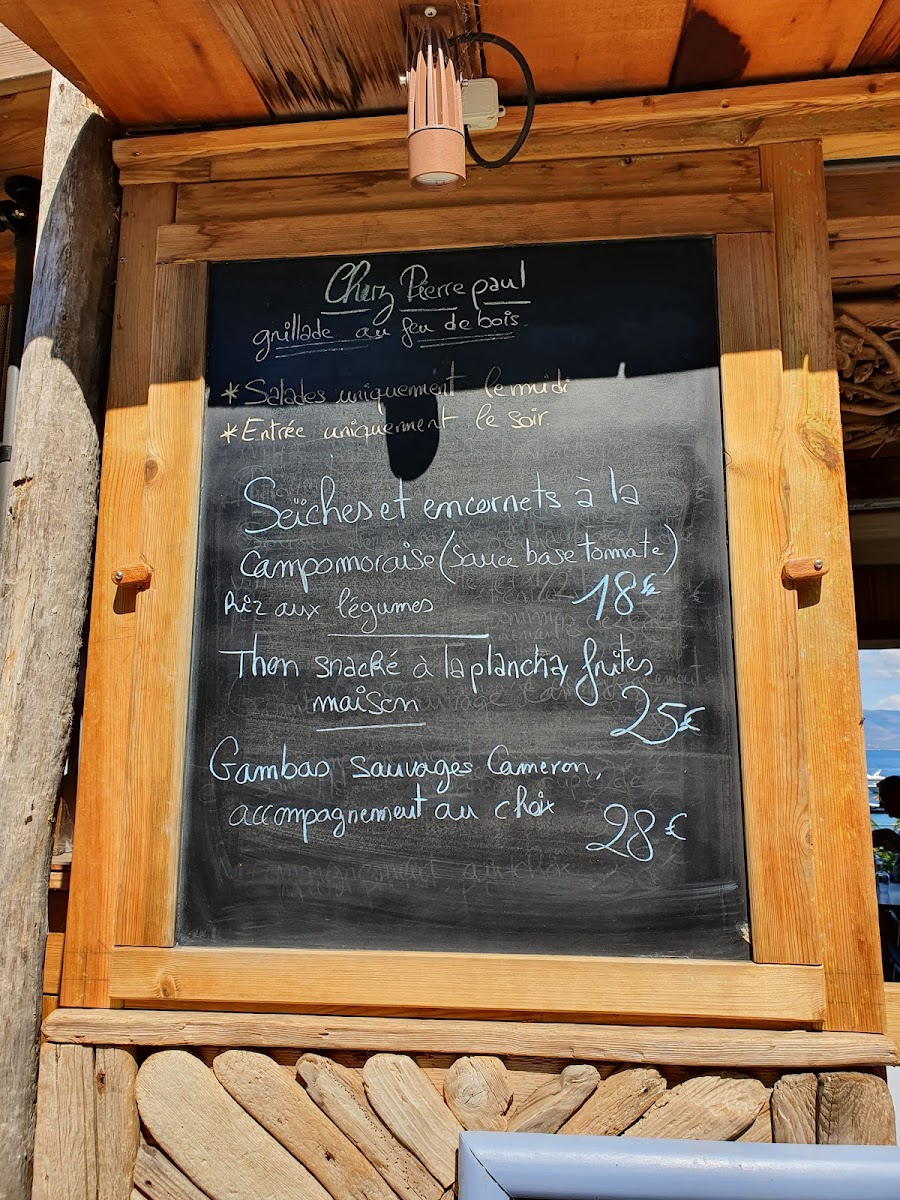 Chez Pierre paul
grillade au feu de bois
* Salades uniquement le midi
* Entrée uniquement le soir.
Seïches et encornets à la
Campomoraise (Sauce base tomate)
Riz aux légumes 18€
Thon snacké à la plancha, frites
maison 25€
Gambas sauvages Cameron,
accompagnement au choix 28€